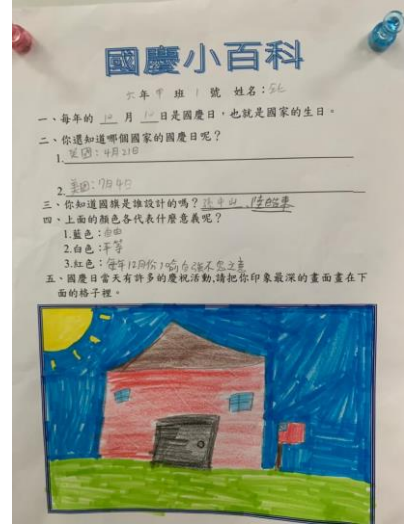 國慶小百科
六年甲班1號 姓名:
一、每年的 10 月 10 日是國慶日,也就是國家的生日。
二、你還知道哪個國家的國慶日呢?
1. 英國:4月21日
2. 美國:7月4日
三、你知道國旗是誰設計的嗎?孫中山、陸皓東
四、上面的顏色各代表什麼意義呢?
1.藍色:自由
2.白色:平等
3.紅色:每年12月份,喻自強不息之意
五、國慶日當天有許多的慶祝活動,請把你印象最深的畫面畫在下
面的格子裡。